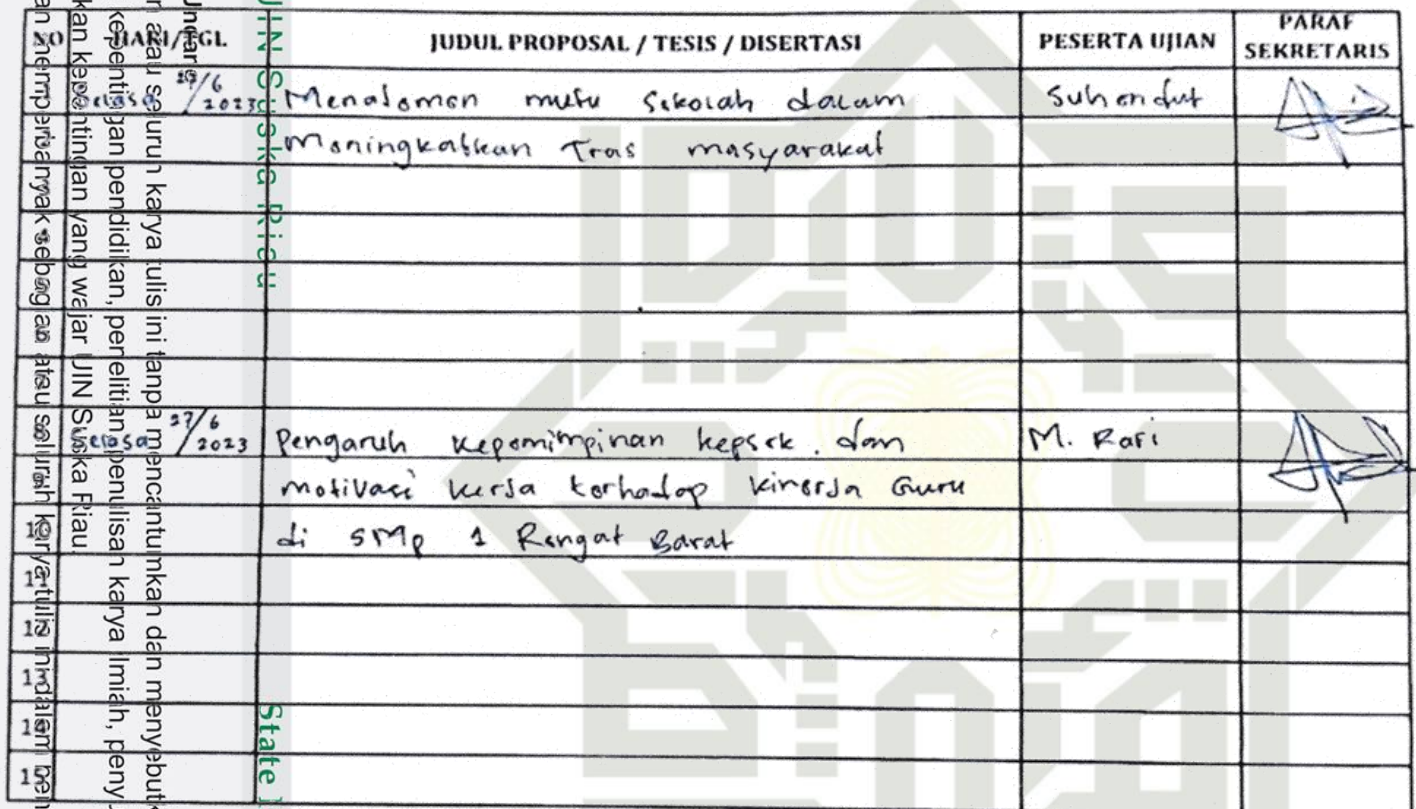 NO HARI/TGL JUDUL PROPOSAL / TESIS / DISERTASI PESERTA UJIAN PARAF SEKRETARIS
Selasa 27/6 2023 Menalomen mutu Sekolah dalam Suhendut
Moningkatkan Tras masyarakat
Selasa 27/6 2023 Pengaruh Kepomimpinan kepsek. dan M. Rari
motivasi kerja terhadap kinerja Guru
10 di SMP 1 Rengat Barat
11
12
13
14
15
UIN Suska Riau
State
Undang
atau seluruh karya tulis ini tanpa mencantumkan dan menyebutk
kepentingan pendidikan, penelitian, penulisan karya ilmiah, peny
kan kepentingan yang wajar UIN Suska Riau.
an memperbanyak sebagian atau seluruh karya tulis ini dalam ben